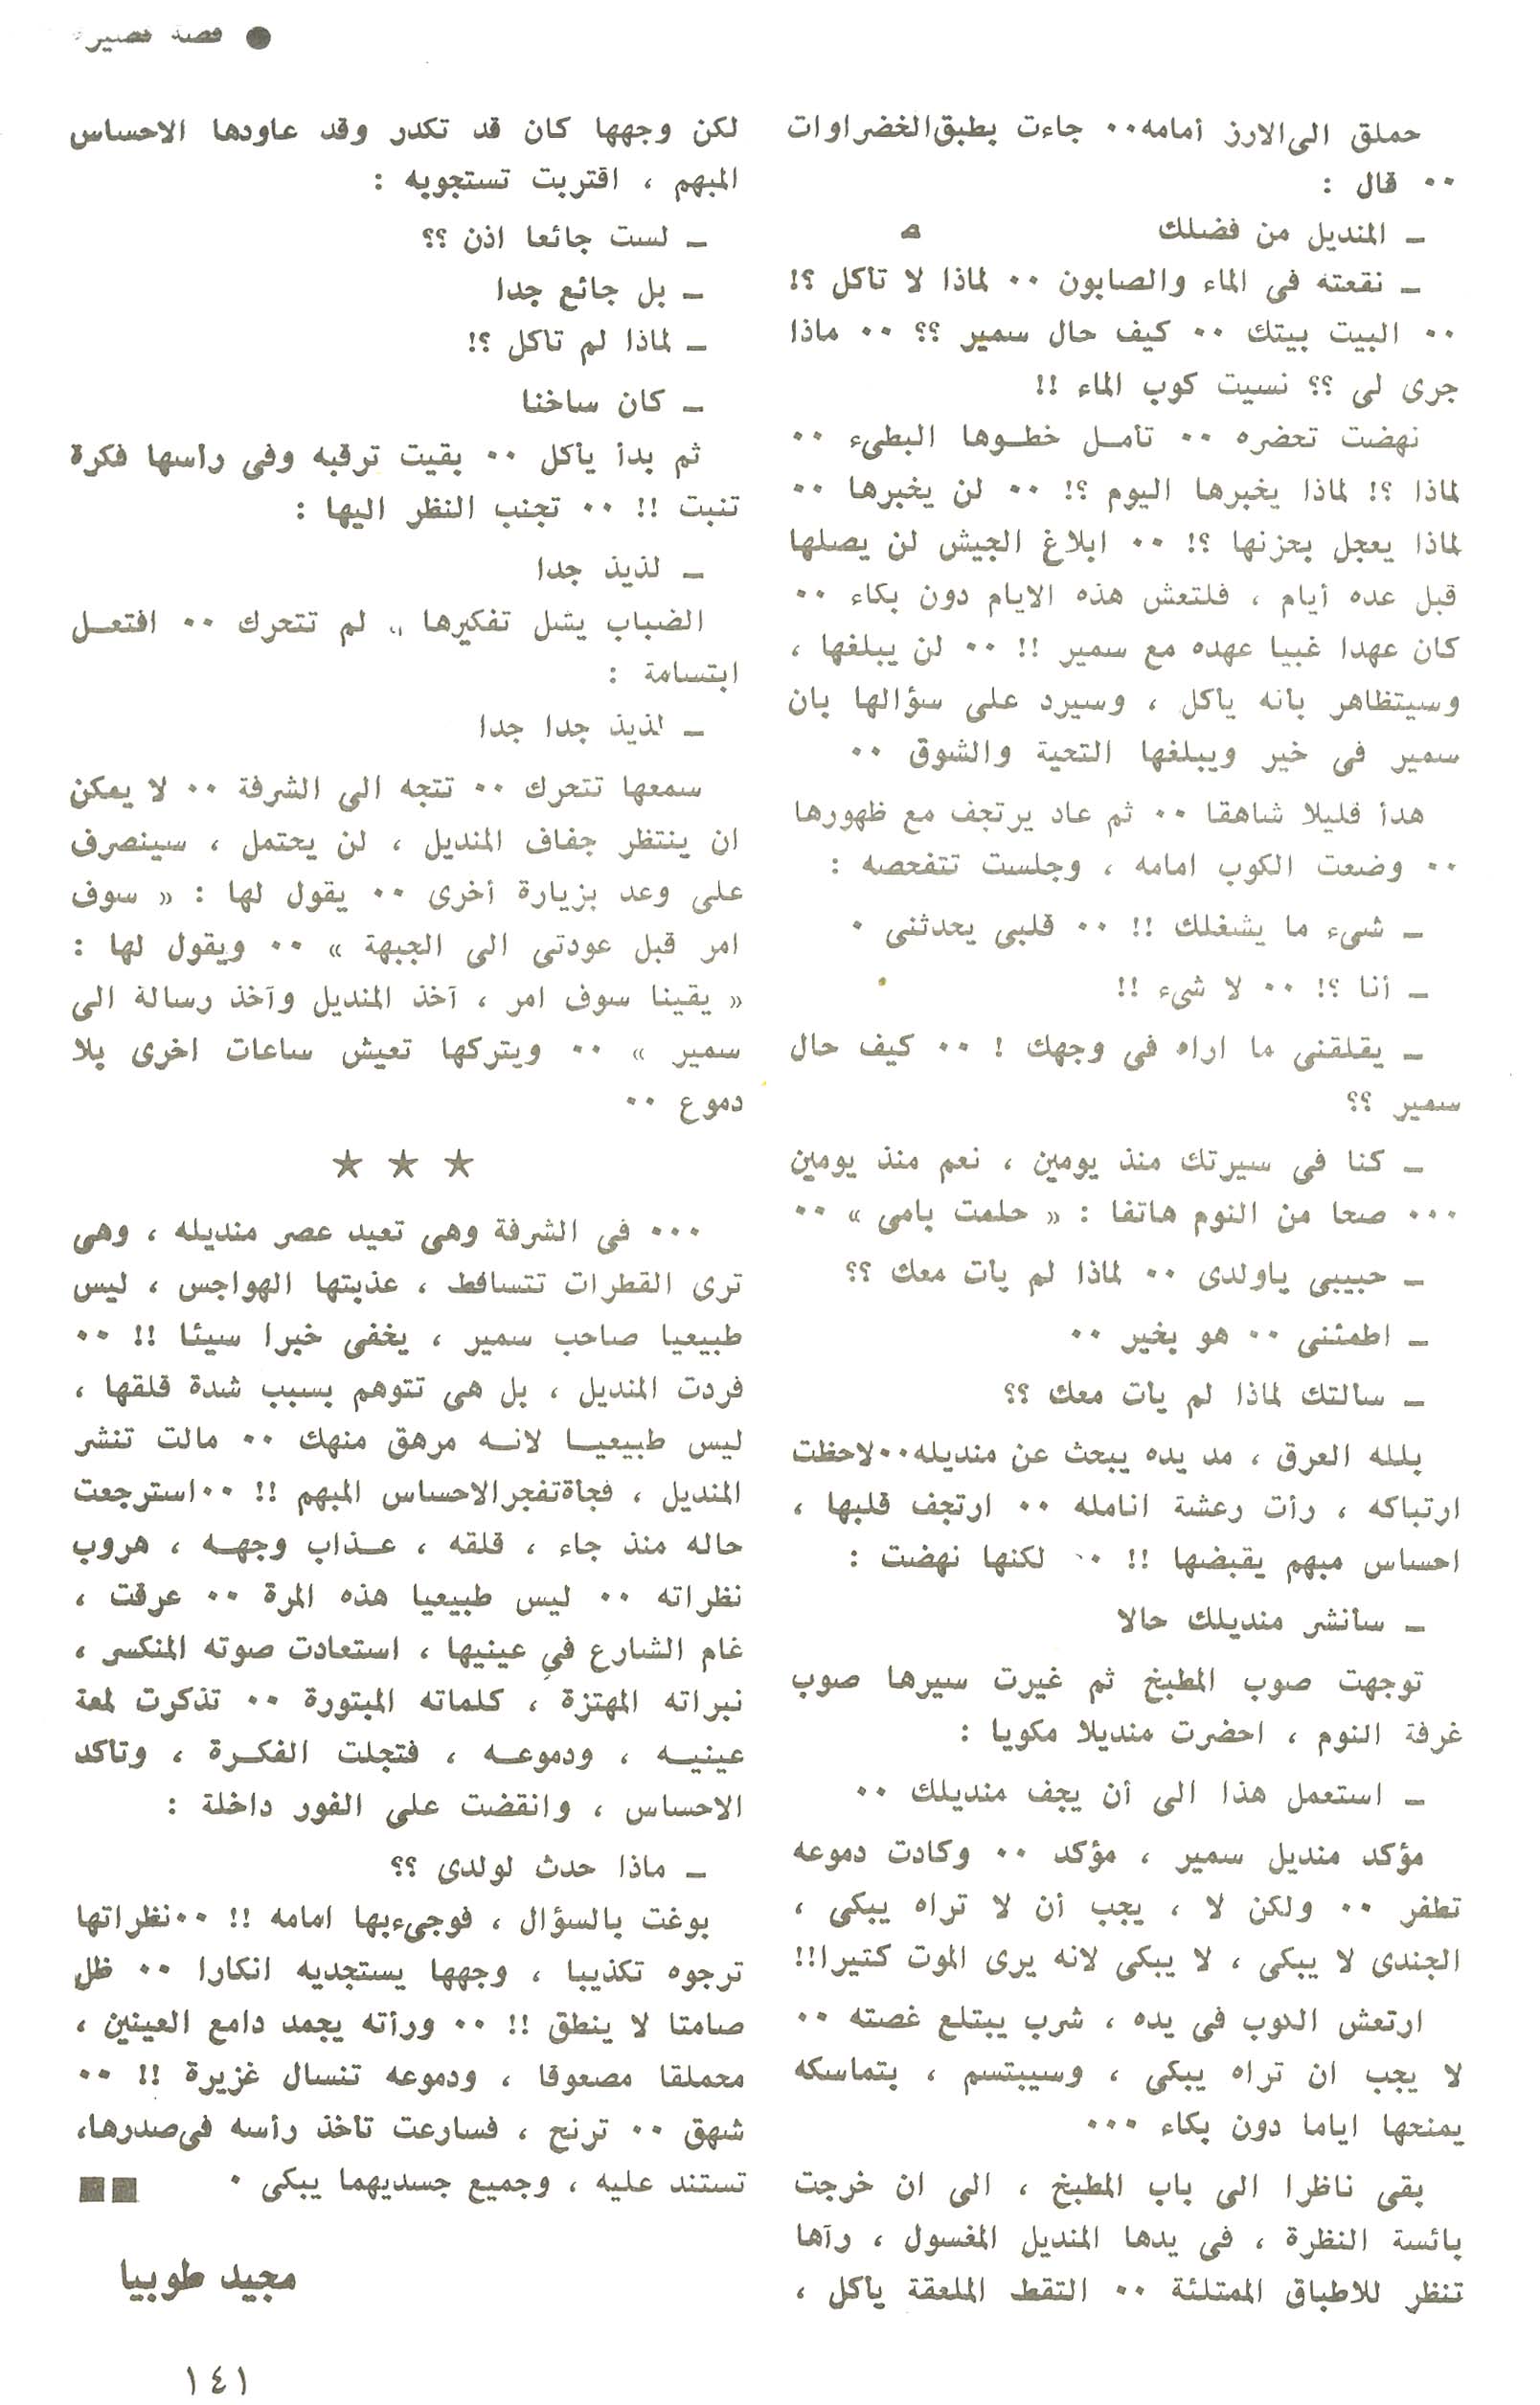 ● قصة قصيرة
حملق الى الارز أمامه ٠٠ جاءت بطبق الخضراوات
٠٠ قال :
ـ المنديل من فضلك
ـ نقعته فى الماء والصابون ٠٠ لماذا لا تأكل ؟!
٠٠ البيت بيتك ٠٠ كيف حال سمير ؟؟ ٠٠ ماذا
جرى لى ؟؟ نسيت كوب الماء !!
نهضت تحضره ٠٠ تأمـل خطـوها البطىء ٠٠
لماذا ؟! لماذا يخبرها اليوم ؟! ٠٠ لن يخبرها ٠٠
لماذا يعجل بحزنها ؟! ٠٠ ابلاغ الجيش لن يصلها
قبل عده أيام ، فلتعش هذه الايام دون بكاء ٠٠
كان عهدا غبيا عهده مع سمير !! ٠٠ لن يبلغها ،
وسيتظاهر بانه ياكل ، وسيرد على سؤالها بان
سمير فى خير ويبلغها التحية والشوق ٠٠
هدأ قليلا شاهقا ٠٠ ثم عاد يرتجف مع ظهورها
٠٠ وضعت الكوب امامه ، وجلست تتفحصه :
ـ شىء ما يشغلك !! ٠٠ قلبى يحدثنى ٠
ـ أنا ؟! ٠٠ لا شىء !!
ـ يقلقنى ما اراه فى وجهك ! ٠٠ كيف حال
سمير ؟؟
ـ كنا فى سيرتك منذ يومين ، نعم منذ يومين
٠٠٠ صحا من النوم هاتفا : « حلمت بامى » ٠٠
ـ حبيبى ياولدى ٠٠ لماذا لم يات معك ؟؟
ـ اطمئنى ٠٠ هو بخير ٠٠
ـ سالتك لماذا لم يات معك ؟؟
بلله العرق ، مد يده يبحث عن منديله ٠٠ لاحظت
ارتباكه ، رأت رعشة انامله ٠٠ ارتجف قلبها ،
احساس مبهم يقبضها !! ٠٠ لكنها نهضت :
ـ سأنشر منديلك حالا
توجهت صوب المطبخ ثم غيرت سيرها صوب
غرفة النوم ، احضرت منديلا مكويا :
ـ استعمل هذا الى أن يجف منديلك ٠٠
مؤكد منديل سمير ، مؤكد ٠٠ وكادت دموعه
تطفر ٠٠ ولكن لا ، يجب أن لا تراه يبكى ،
الجندى لا يبكى ، لا يبكى لانه يرى الموت كتيرا!!
ارتعش الكوب فى يده ، شرب يبتلع غصته ٠٠
لا يجب ان تراه يبكى ، وسيبتسم ، بتماسكه
يمنحها اياما دون بكاء ٠٠٠
بقى ناظرا الى باب المطبخ ، الى ان خرجت
بائسة النظرة ، فى يدها المنديل المغسول ، رآها
تنظر للاطباق الممتلئة ٠٠ التقط الملعقة يأكل ،
لكن وجهها كان قد تكدر وقد عاودها الاحساس
المبهم ، اقتربت تستجوبه :
ـ لست جائعا اذن ؟؟
ـ بل جائع جدا
ـ لماذا لم تاكل ؟!
ـ كان ساخنا
ثم بدأ يأكل ٠٠ بقيت ترقبه وفى رأسها فكرة
تنبت !! ٠٠ تجنب النظر اليها :
ـ لذيذ جدا
الضباب يشل تفكيرها ٠٠ لم تتحرك ٠٠ افتعـل
ابتسامة :
ـ لذيذ جدا جدا
سمعها تتحرك ٠٠ تتجه الى الشرفة ٠٠ لا يمكن
ان ينتظر جفاف المنديل ، لن يحتمل ، سينصرف
على وعد بزيارة أخرى ٠٠ يقول لها : « سوف
امر قبل عودتى الى الجبهة » ٠٠ ويقول لها :
« يقينا سوف امر ، آخذ المنديل وآخذ رسالة الى
سمير » ٠٠ ويتركها تعيش ساعات اخرى بلا
دموع ٠٠
★ ★ ★
٠٠٠ فى الشرفة وهى تعيد عصر منديله ، وهى
ترى القطرات تتساقط ، عذبتها الهواجس ، ليس
طبيعيا صاحب سمير ، يخفى خبرا سيئا !! ٠٠
فردت المنديل ، بل هى تتوهم بسبب شدة قلقها ،
ليس طبيعيـا لانـه مرهق منهك ٠٠ مالت تنشر
المنديل ، فجأة تفجر الاحساس المبهم !! ٠٠ استرجعت
حاله منذ جاء ، قلقه ، عـذاب وجهـه ، هروب
نظراته ٠٠ ليس طبيعيا هذه المرة ٠٠ عرقت ،
غام الشارع في عينيها ، استعادت صوته المنكسر ،
نبراته المهتزة ، كلماته المبتورة ٠٠ تذكرت لمعة
عينيـه ، ودموعـه ، فتجلت الفكـرة ، وتاكد
الاحساس ، وانقضت على الفور داخلة :
ـ ماذا حدث لولدى ؟؟
بوغت بالسؤال ، فوجىء بها امامه !! ٠٠ نظراتها
ترجوه تكذيبا ، وجهها يستجديه انكارا ٠٠ ظل
صامتا لا ينطق !! ٠٠ ورأته يجمد دامع العينين ،
محملقا مصعوقا ، ودموعه تنسال غزيرة !! ٠٠
شهق ٠٠ ترنح ، فسارعت تأخذ رأسه فى صدرها،
تستند عليه ، وجميع جسديهما يبكى ٠ ■■
مجيد طوبيا
١٤١